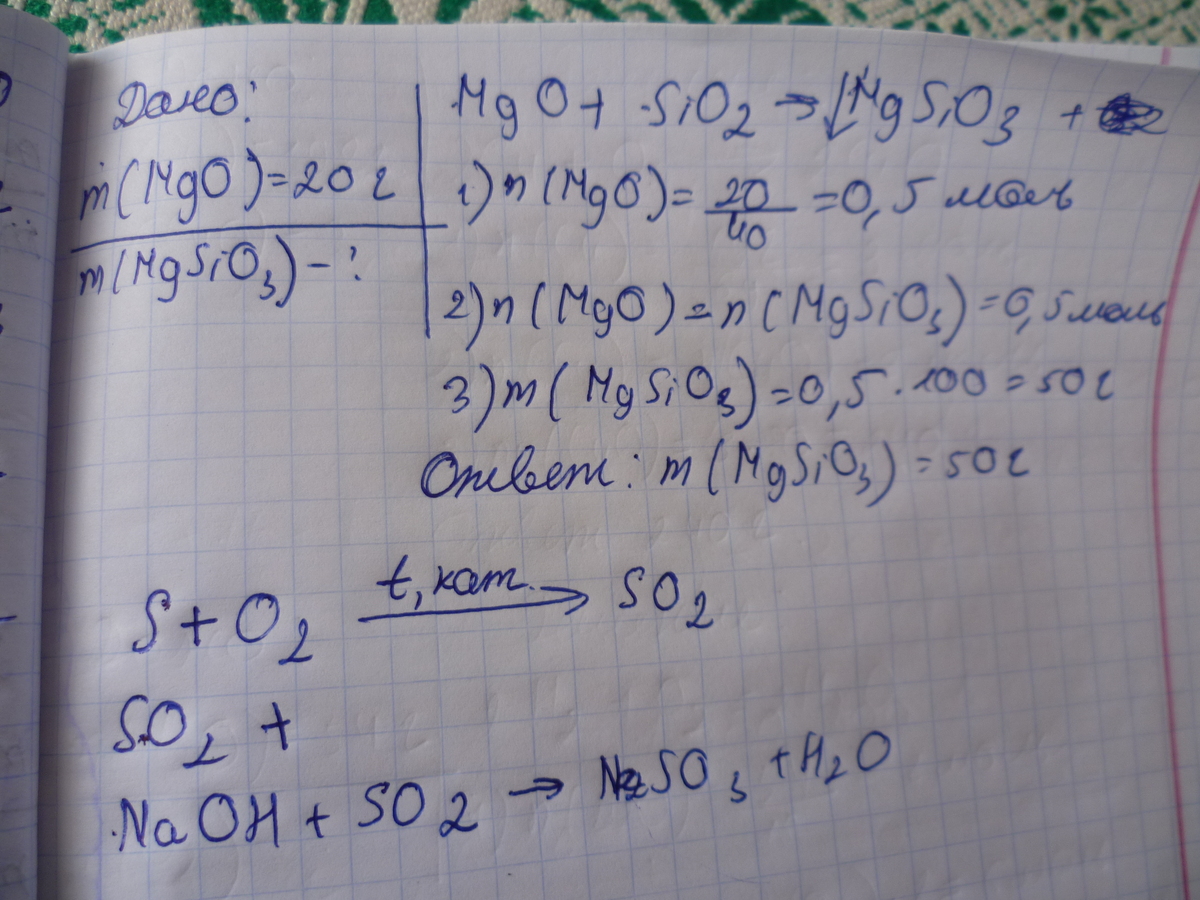 Дано:
m(MgO)=20 г
m(MgSiO3)-?
MgO + SiO2 → ↓MgSiO3 +
1) n(MgO)= 20/40 =0,5 моль
2) n(MgO)=n(MgSiO3)=0,5 моль
3) m(MgSiO3)=0,5·100=50 г
Ответ: m(MgSiO3)=50 г
S+O2 t, кат. → SO2
SO2 +
NaOH + SO2 → Na2SO3 + H2O